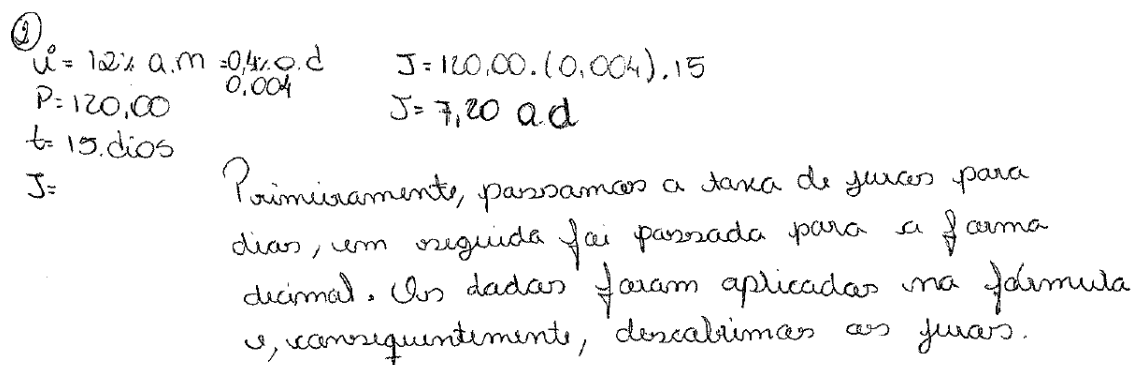 2
i = 12% a.m = 0,4% a.d J = 120,00.(0,004).15
0,004
P = 120,00 J = 7,20 a.d
t = 15.dias
J =
Primeiramente, passamos a taxa de juros para
dias, em seguida foi passada para a forma
decimal. Os dados foram aplicados na fórmula
e, consequentemente, descobrimos os juros.